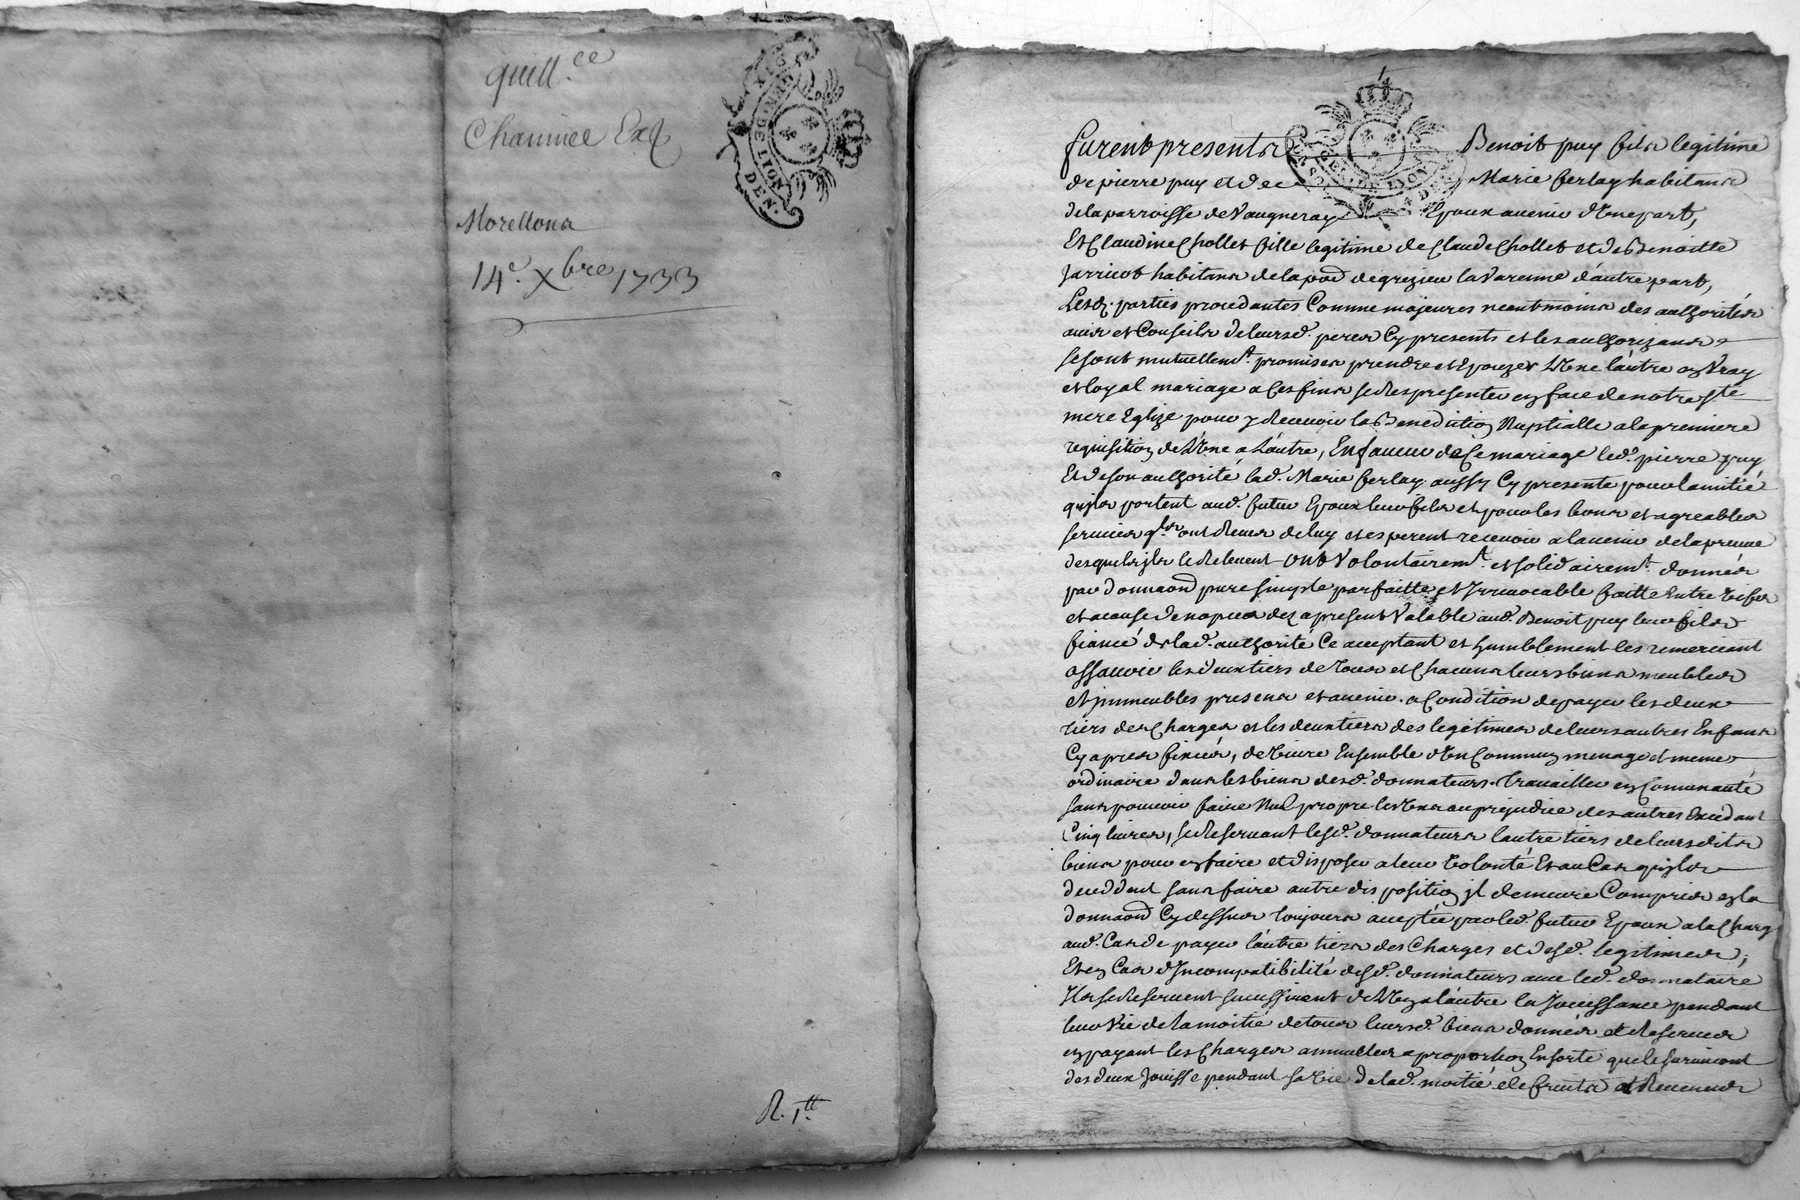 quitt.ce
Morellons
14e. Xbre 1733
R. 1tt
furent presents Benoit puy fils legitime
de pierre puy et de Marie ferlay habitans
de la parroisse de Vaugneray Epoux avenir d'Une part,
Et Claudine Chollet fille legitime de Claude Chollet et de Benoitte
Jarricot habitans de la par.d de grezieu la Varenne d'autre part,
Lesd. parties procedantes Comme majeures neantmoins des authorités
avis et Conseils de leursd. peres Cy presents et les authorizans
se sont mutuellem.t promises prendre et Epouzer l'Une l'autre en Vray
et loyal mariage a Ces fins se Representer en face de notre ste
mere Eglize pour y Recevoir la Benediction Nuptialle a la premiere
requisition de l'Une a L'autre, En faveur de Ce mariage led. pierre puy
Et de son authorité lad. Marie ferlay aussy Cy presente pour l'amitié
qu'ils portent aud. futur Epoux leur fils et pour les bons et agreables
services qls. ont Receus de luy et esperent recevoir a lavenir de la preuve
desquels ils le Relevent Ont Volontairem.t et solidairem.t donnés
par donnaon pure simple parfaitte et Irrevocable faitte Entre Vifs
et a cause de nopces dez a present Valable aud. Benoit puy leur fils
fiancé de lad. authorité Ce acceptant et humblement les remerciant
assavoir les deux tiers de tous et Chacuns leurs biens meubles
et immeubles presens et avenir a Condition de payer les deux
tiers des Charges et les deux tiers des legitimes de leurs autres Enfans
Cy apres fixées, de Vivre Ensemble d'Un Commun menage et meme
ordinaire dans les biens desd. donnateurs travailler en Comunauté
sans pouvoir faire Nul propre les Uns au prejudice des autres Excedant
Cinq livres, se Reservant lesd. donnateurs l'autre tiers de leursdits
biens pour en faire et disposer a leur Volonté Et au Cas qu'ils
decedent sans faire autre disposition il demeure Compris en la
donnaon Cy dessus toujours acceptée par led. futur Epoux a la Charge
aud. Cas de payer l'autre tiers des Charges et desd. legitimes,
Et en Cas d'Incompatibilité desd. donnateurs avec led. donnataire
Ils se Reservent la Jouissance pendant
leur Vie de la moitié de tous leursd. biens donnés et Reservés
en payant les Charges annuelles a proportion En sorte que le survivant
des deux Jouisse pendant sa Vie de lad. moitié de fruits et Revenus